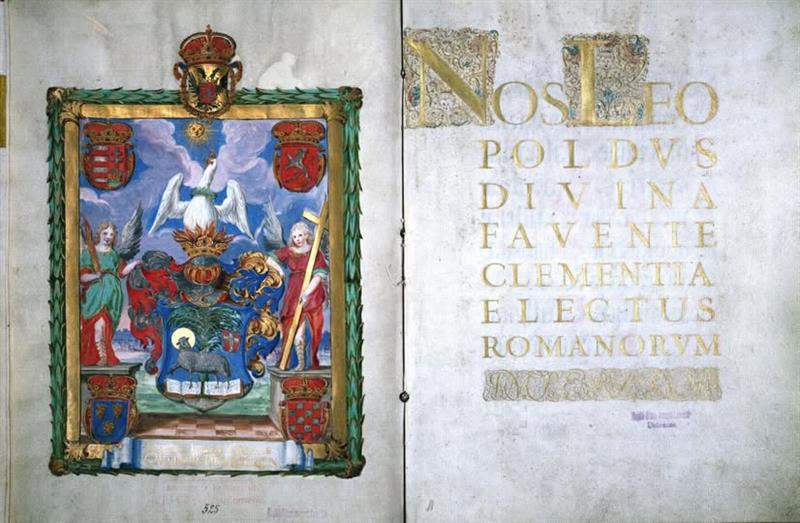 525
NOS LEO
POLDVS
DIVINA
FAVENTE
CLEMENTIA
ELECTUS
ROMANORVM